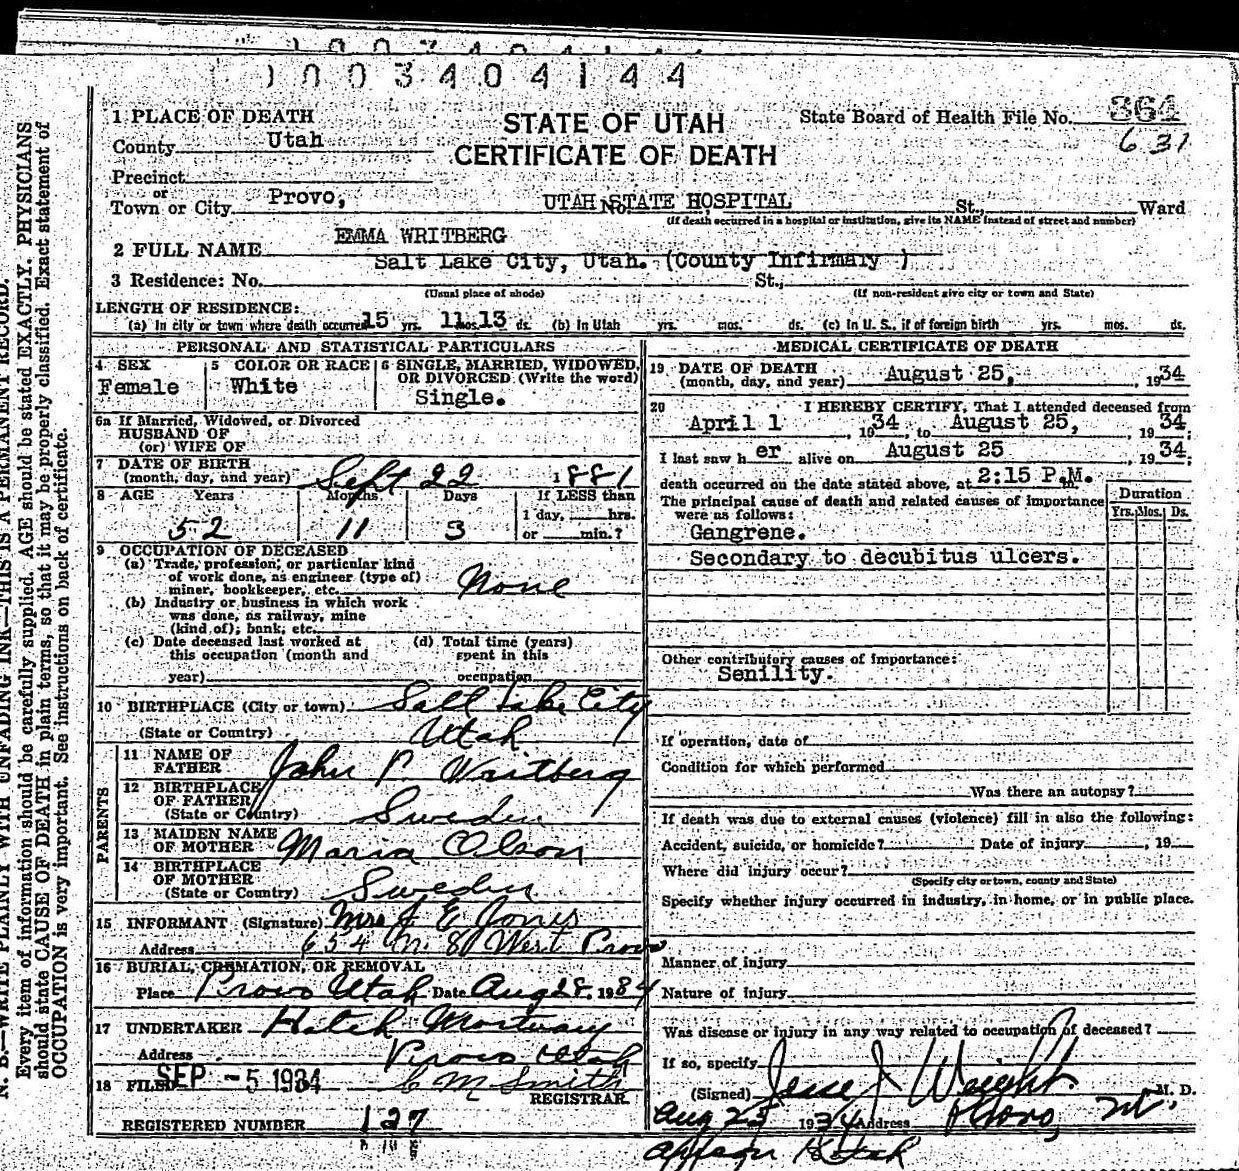 1003404144
STATE OF UTAH
CERTIFICATE OF DEATH
State Board of Health File No. 364
631
1 PLACE OF DEATH
County Utah
Precinct
or
Town or City Provo, No. UTAH STATE HOSPITAL St., Ward
(If death occurred in a hospital or institution, give its NAME instead of street and number)
2 FULL NAME EMMA WRITBERG
Salt Lake City, Utah. (County Infirmary )
3 Residence: No. St.,
(Usual place of abode) (If non-resident give city or town and State)
LENGTH OF RESIDENCE:
(a) In city or town where death occurred 15 yrs. 11 mos. 13 ds. (b) In Utah yrs. mos. ds. (c) In U. S., if of foreign birth yrs. mos. ds.
PERSONAL AND STATISTICAL PARTICULARS
4 SEX
Female
5 COLOR OR RACE
White
6 SINGLE, MARRIED, WIDOWED,
OR DIVORCED (Write the word)
Single.
6a If Married, Widowed, or Divorced
HUSBAND OF
(or) WIFE OF
7 DATE OF BIRTH
(month, day, and year) Sept 22 1881
8 AGE Years Months Days If LESS than
1 day, hrs.
52 11 3 or min.?
9 OCCUPATION OF DECEASED
(a) Trade, profession, or particular kind
of work done, as engineer (type of)
miner, bookkeeper, etc. None
(b) Industry or business in which work
was done, as railway, mine
(kind of); bank, etc.
(c) Date deceased last worked at
this occupation (month and
year)
(d) Total time (years)
spent in this
occupation
10 BIRTHPLACE (City or town) Salt Lake City
(State or Country) Utah
PARENTS
11 NAME OF
FATHER John P. Writberg
12 BIRTHPLACE
OF FATHER
(State or Country) Sweden
13 MAIDEN NAME
OF MOTHER Maria Olson
14 BIRTHPLACE
OF MOTHER
(State or Country) Sweden
15 INFORMANT (Signature) Mrs J E Jones
Address 654 N. 8 West Provo
16 BURIAL, CREMATION, OR REMOVAL
Place Provo Utah Date Aug 28. 1934
17 UNDERTAKER Hatch Mortuary
Address Provo Utah
18 FILED SEP -5 1934 C M Smith
REGISTRAR
REGISTERED NUMBER 127
MEDICAL CERTIFICATE OF DEATH
19 DATE OF DEATH
(month, day, and year) August 25, , 1934
20 I HEREBY CERTIFY, That I attended deceased from
April 1 , 1934, to August 25, , 1934;
I last saw her alive on August 25 , 1934;
death occurred on the date stated above, at 2:15 P.M. m.
The principal cause of death and related causes of importance
were as follows:
Duration
Yrs. Mos. Ds.
Gangrene.
Secondary to decubitus ulcers.
Other contributory causes of importance:
Senility.
If operation, date of
Condition for which performed
Was there an autopsy?
If death was due to external causes (violence) fill in also the following:
Accident, suicide, or homicide? Date of injury , 19
Where did injury occur?
(Specify city or town, county and State)
Specify whether injury occurred in industry, in home, or in public place.
Manner of injury
Nature of injury
Was disease or injury in any way related to occupation of deceased?
If so, specify
(Signed) Jesse J Weight M. D.
Aug 25 1934 Address Provo,
Utah
N. B.—WRITE PLAINLY WITH UNFADING INK—THIS IS A PERMANENT RECORD.
Every item of information should be carefully supplied. AGE should be stated EXACTLY. PHYSICIANS
should state CAUSE OF DEATH in plain terms, so that it may be properly classified. Exact statement of
OCCUPATION is very important. See instructions on back of certificate.